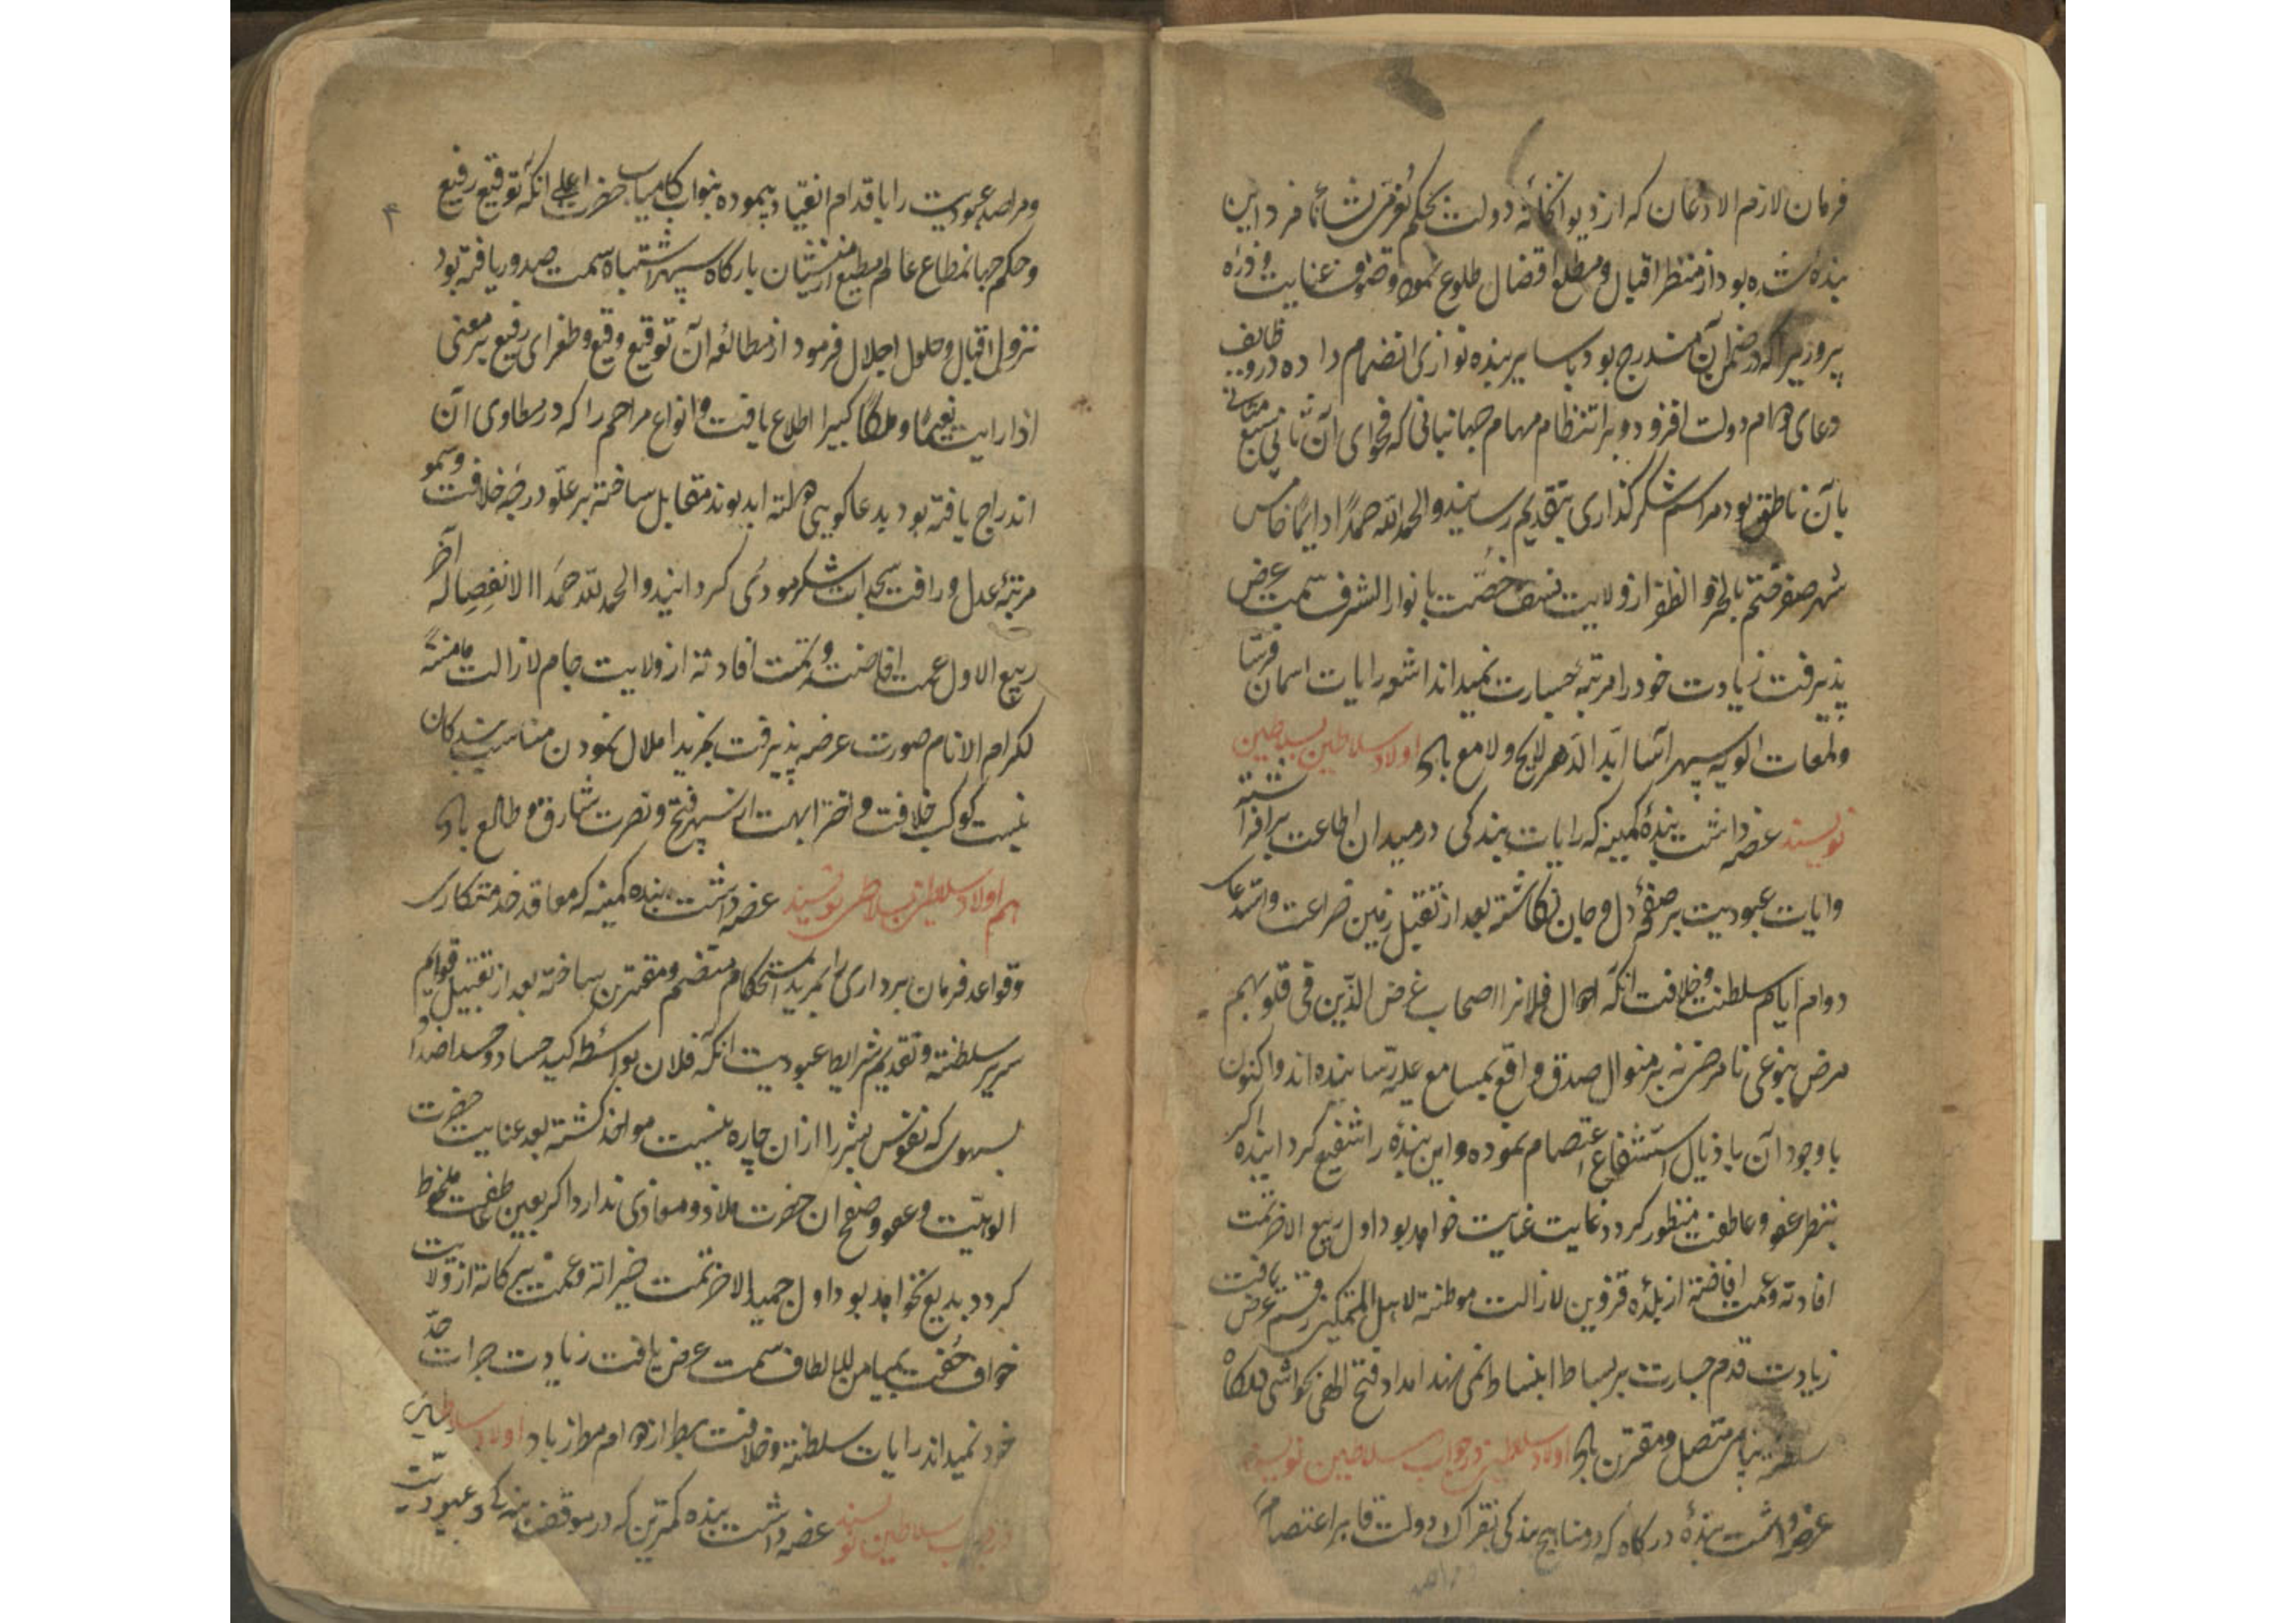 فرمان لازم الاذعان که از دیوانخانه دولت بحکم نامزد این
بنده شده بود از منظر اقبال و مطلع افضال طلوع نمود و صنوف عنایت و ذره
پروری را که در ضمن آن مندرج بود با سایر بنده نوازی انضمام داده در وظایف
دعای دوام دولت افزود و بر انتظام مهام جهانبانی که فحوای آن مثانی
بآن ناطق بود مراسم شکرگذاری بتقدیم رسانید والحمد لله حمدا دایما خامس
شهر صفر ختم بالخیر و الظفر از ولایت بانوار الشرف سمت عرض
پذیرفت زیادت خود را مرتبه جسارت نمیداند اشعه رایات اسمان فرسا
ولمعات الویه سپهر آسا ابد الدهر لایح و لامع باد اولاد سلاطین بسلاطین
نویسند عرضه داشت بنده کمینه که رایات بندکی در میدان اطاعت برافراشته
وایات عبودیت بر صفحه دل و جان نکاشته بعد از تقبیل زمین ضراعت واستدعای
دوام ایام سلطنت و خلافت انکه احوال فلانرا اصحاب غرض الذین فی قلوبهم
مرض بنوعی نامرضی نه بر منوال صدق و واقع بمسامع علیه رسانیده اند واکنون
با وجود آن باذیال استشفاع اعتصام نموده و این بنده را شفیع کردانیده اکر
بنظر عفو و عاطفت منظور کردد غایت عنایت خواهد بود اول ربیع الاخر تمت
افادته و عمت افاضته از بلده قزوین لازالت موطنة لاهل التمکین رقم عرض یافت
زیادت قدم جسارت بر بساط انبساط نمی نهد امداد فتح الهی بحواشی
متصل و مقترن باد اولاد سلاطین در جواب سلاطین نویسند
عرضه داشت بنده درکاه که در مناهج بندکی بفتراک دولت قاهره اعتصام
۴
ومراصد عبودیت را باقدام انقیاد پیموده بنواب کامیاب حضرت اعلی انکه توقیع رفیع
وحکم جهانمطاع عالم مطیع از منشیان بارکاه سپهر اشتباه سمت صدور یافته بود
نزول اقبال و حلول اجلال فرمود از مطالعه آن توقیع وقیع و طغرای رفیع بر معنی
اذا رایت نعیما و ملکا کبیرا اطلاع یافت و انواع مراحم را که در مطاوی آن
اندراج یافته بود بدعاکویی دولت ابد پیوند مقابل ساخته بر علو درجه خلافت وسمو
مرتبه عدل و رافت سجدات شکر مودی کردانید والحمد لله حمدا لا انفصال له آخر
ربیع الاول عمت افاضته و تمت افادته از ولایت جام لازالت مامنة
لکرام الانام صورت عرضه پذیرفت بمزید املال نمودن مناسب بندکان
نیست کوکب خلافت و اختر ابهت از سپهر فتح و نصرت شارق و طالع باد
هم اولاد سلاطین بسلاطین نویسند عرضه داشت بنده کمینه که معاقد خدمتکاری
وقواعد فرمان برداری را بمزید استحکام منضم و مقترن ساخته بعد از تقبیل قوایم
سریر سلطنت و تقدیم شرایط عبودیت انکه فلان بواسطه کید حساد و حسد اضداد
بسهوی که نفوس بشر را ازان چاره نیست مواخذ کشته بعد عنایت حضرت
الوهیت و عفو و صفح ان حضرت ملاذ و معاذی ندارد اکر بعین عاطفت ملحوظ
کردد بدیع نخواهد بود اول جمید الاخر تمت خیراته و عمت برکاته از ولایت
خواف حفت بمیامن الالطاف سمت عرض یافت زیادت جرات حد
خود نمیداند رایات سلطنت و خلافت بطراز دوام مطرز باد اولاد سلاطین
در جواب سلاطین نویسند عرضه داشت بنده کمترین که در موقف بندکی و عبودیت